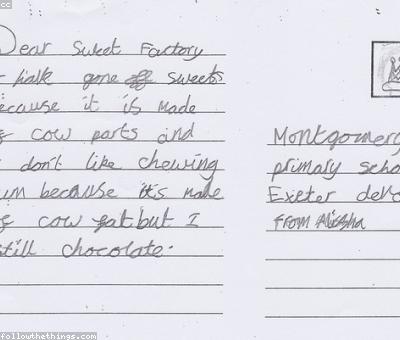 Dear Sweet Factory
halk gone off sweets
ecause it is made
of cow parts and
don't like chewing
um because it's made
of cow fat but I
still chocolate.
Montgomery
primary scho
Exeter devo
FROM Alisha
followthethings.com